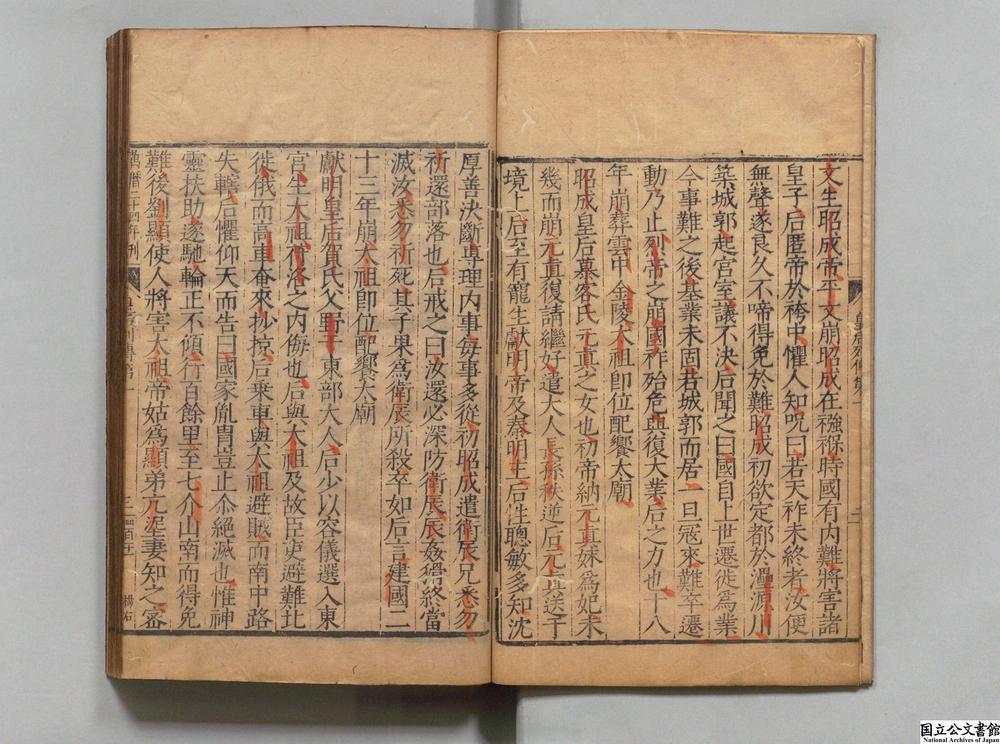 文生昭成帝平文崩昭成在襁褓時國有内難將害諸
皇子后匿帝於袴中懼人知呪曰若天祚未終者汝便
無聲遂良久不啼得免於難昭成初欲定都於㶟源川
築城郭起宮室議不決后聞之曰國自上世遷徙為業
今事難之後基業未固若城郭而居一旦寇來難卒遷
動乃止烈帝之崩國祚殆危興復大業后之力也十八
年崩葬雲中金陵太祖即位配饗太廟
昭成皇后慕容氏元真之女也初帝納元真妹為妃未
幾而崩元真復請繼好遣大人長孫秩逆后元真送于
境上后至有寵生獻明帝及秦明王后性聰敏多知沈
厚善決斷專理内事每事多從初昭成遣衛辰兄悉勿
祈還部落也后戒之曰汝還必深防衛辰辰姦猾終當
滅汝悉勿祈死其子果為衛辰所殺卒如后言建國二
十三年崩太祖即位配饗太廟
獻明皇后賀氏父野干東部大人后少以容儀選入東
宮生太祖苻洛之内侮也后與太祖及故臣吏避難北
徙俄而高車奄來抄掠后乗車與太祖避賊而南中路
失轄后懼仰天而告曰國家胤胄豈止尒絕滅也惟神
靈扶助遂馳輪正不傾行百餘里至七介山南而得免
難後劉顯使人將害太祖帝姑為顯弟亢埿妻知之密
萬曆二十四年刊
三
楊右
國立公文書館
National Archives of Japan